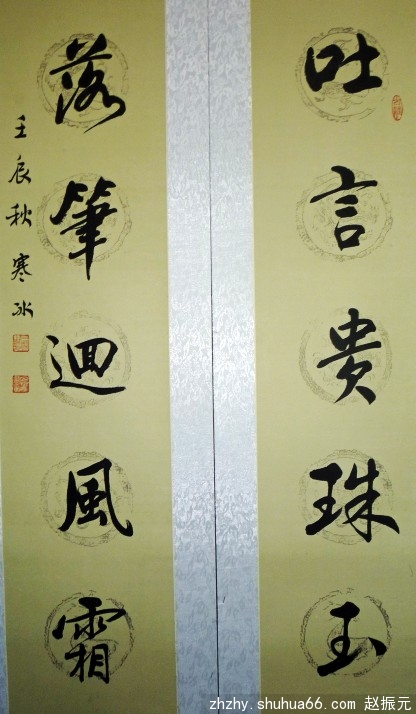 吐言貴珠玉
落筆迴風霜
壬辰秋寒冰
zhzhy.shuhua66.com 赵振元